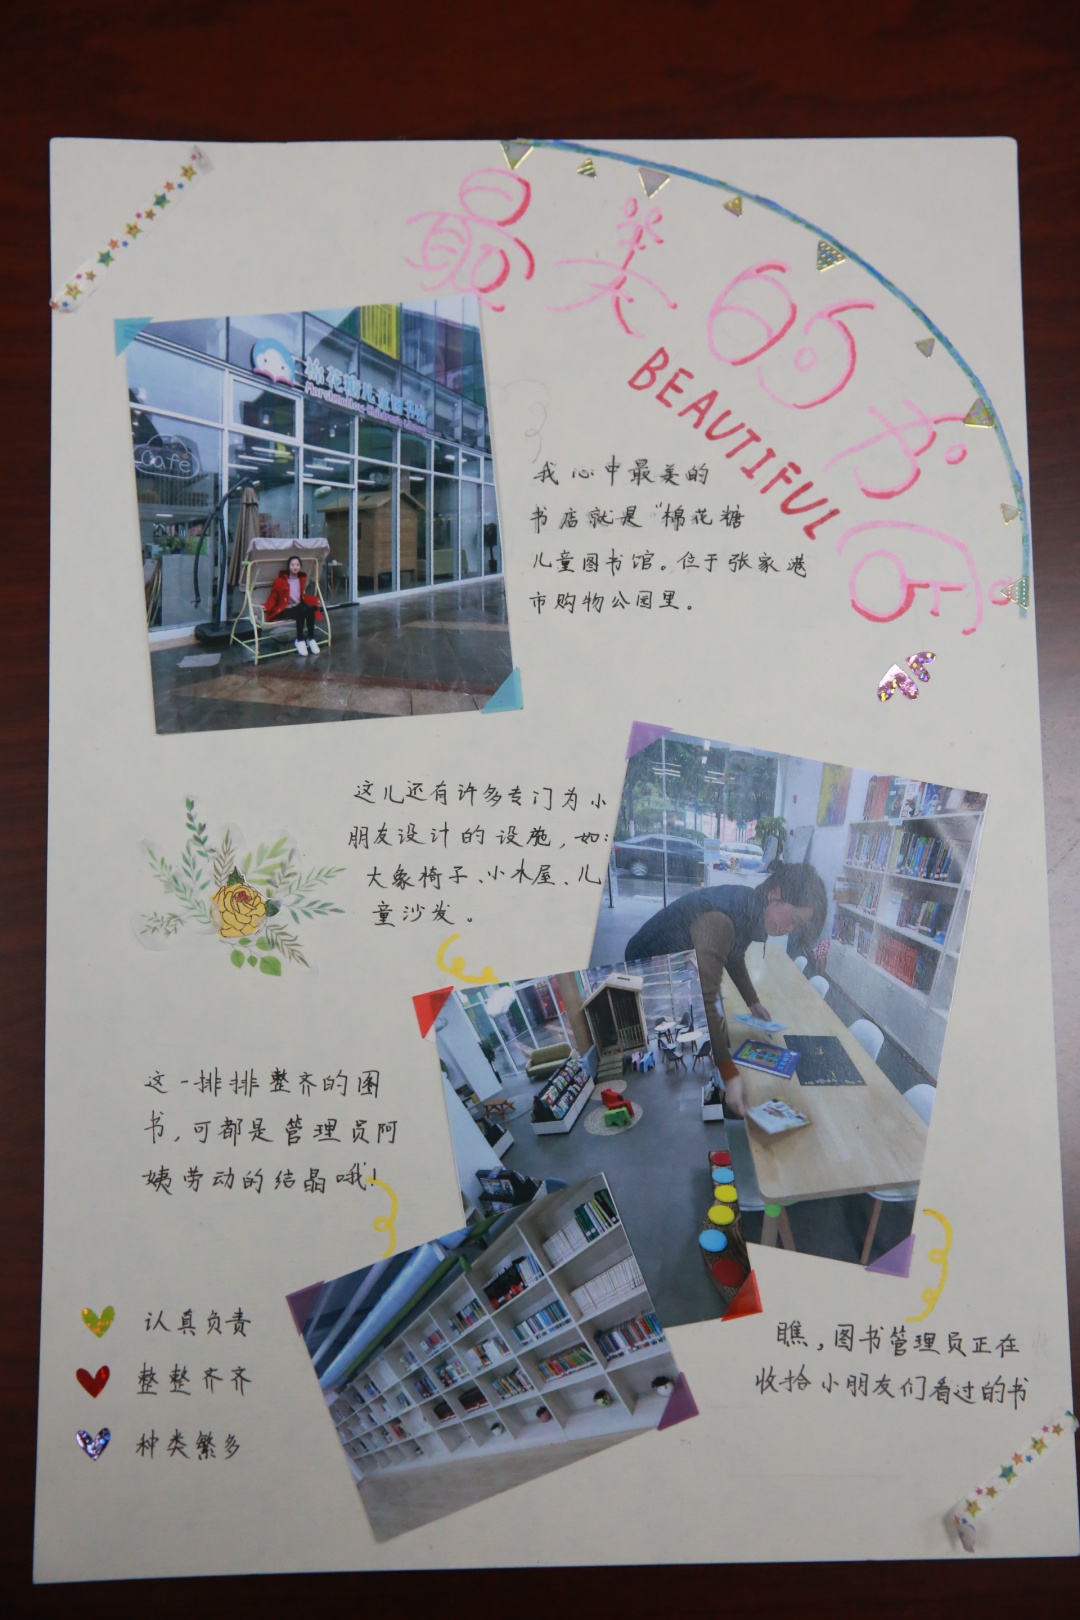 最美的书店
BEAUTIFUL
棉花糖儿童图书馆
Cafe
我心中最美的
书店就是“棉花糖
儿童图书馆。位于张家港
市购物公园里。
这儿还有许多专门为小
朋友设计的设施，如：
大象椅子、小木屋、儿
童沙发。
这一排排整齐的图
书，可都是管理员阿
姨劳动的结晶哦！
认真负责
整整齐齐
种类繁多
瞧，图书管理员正在
收拾小朋友们看过的书